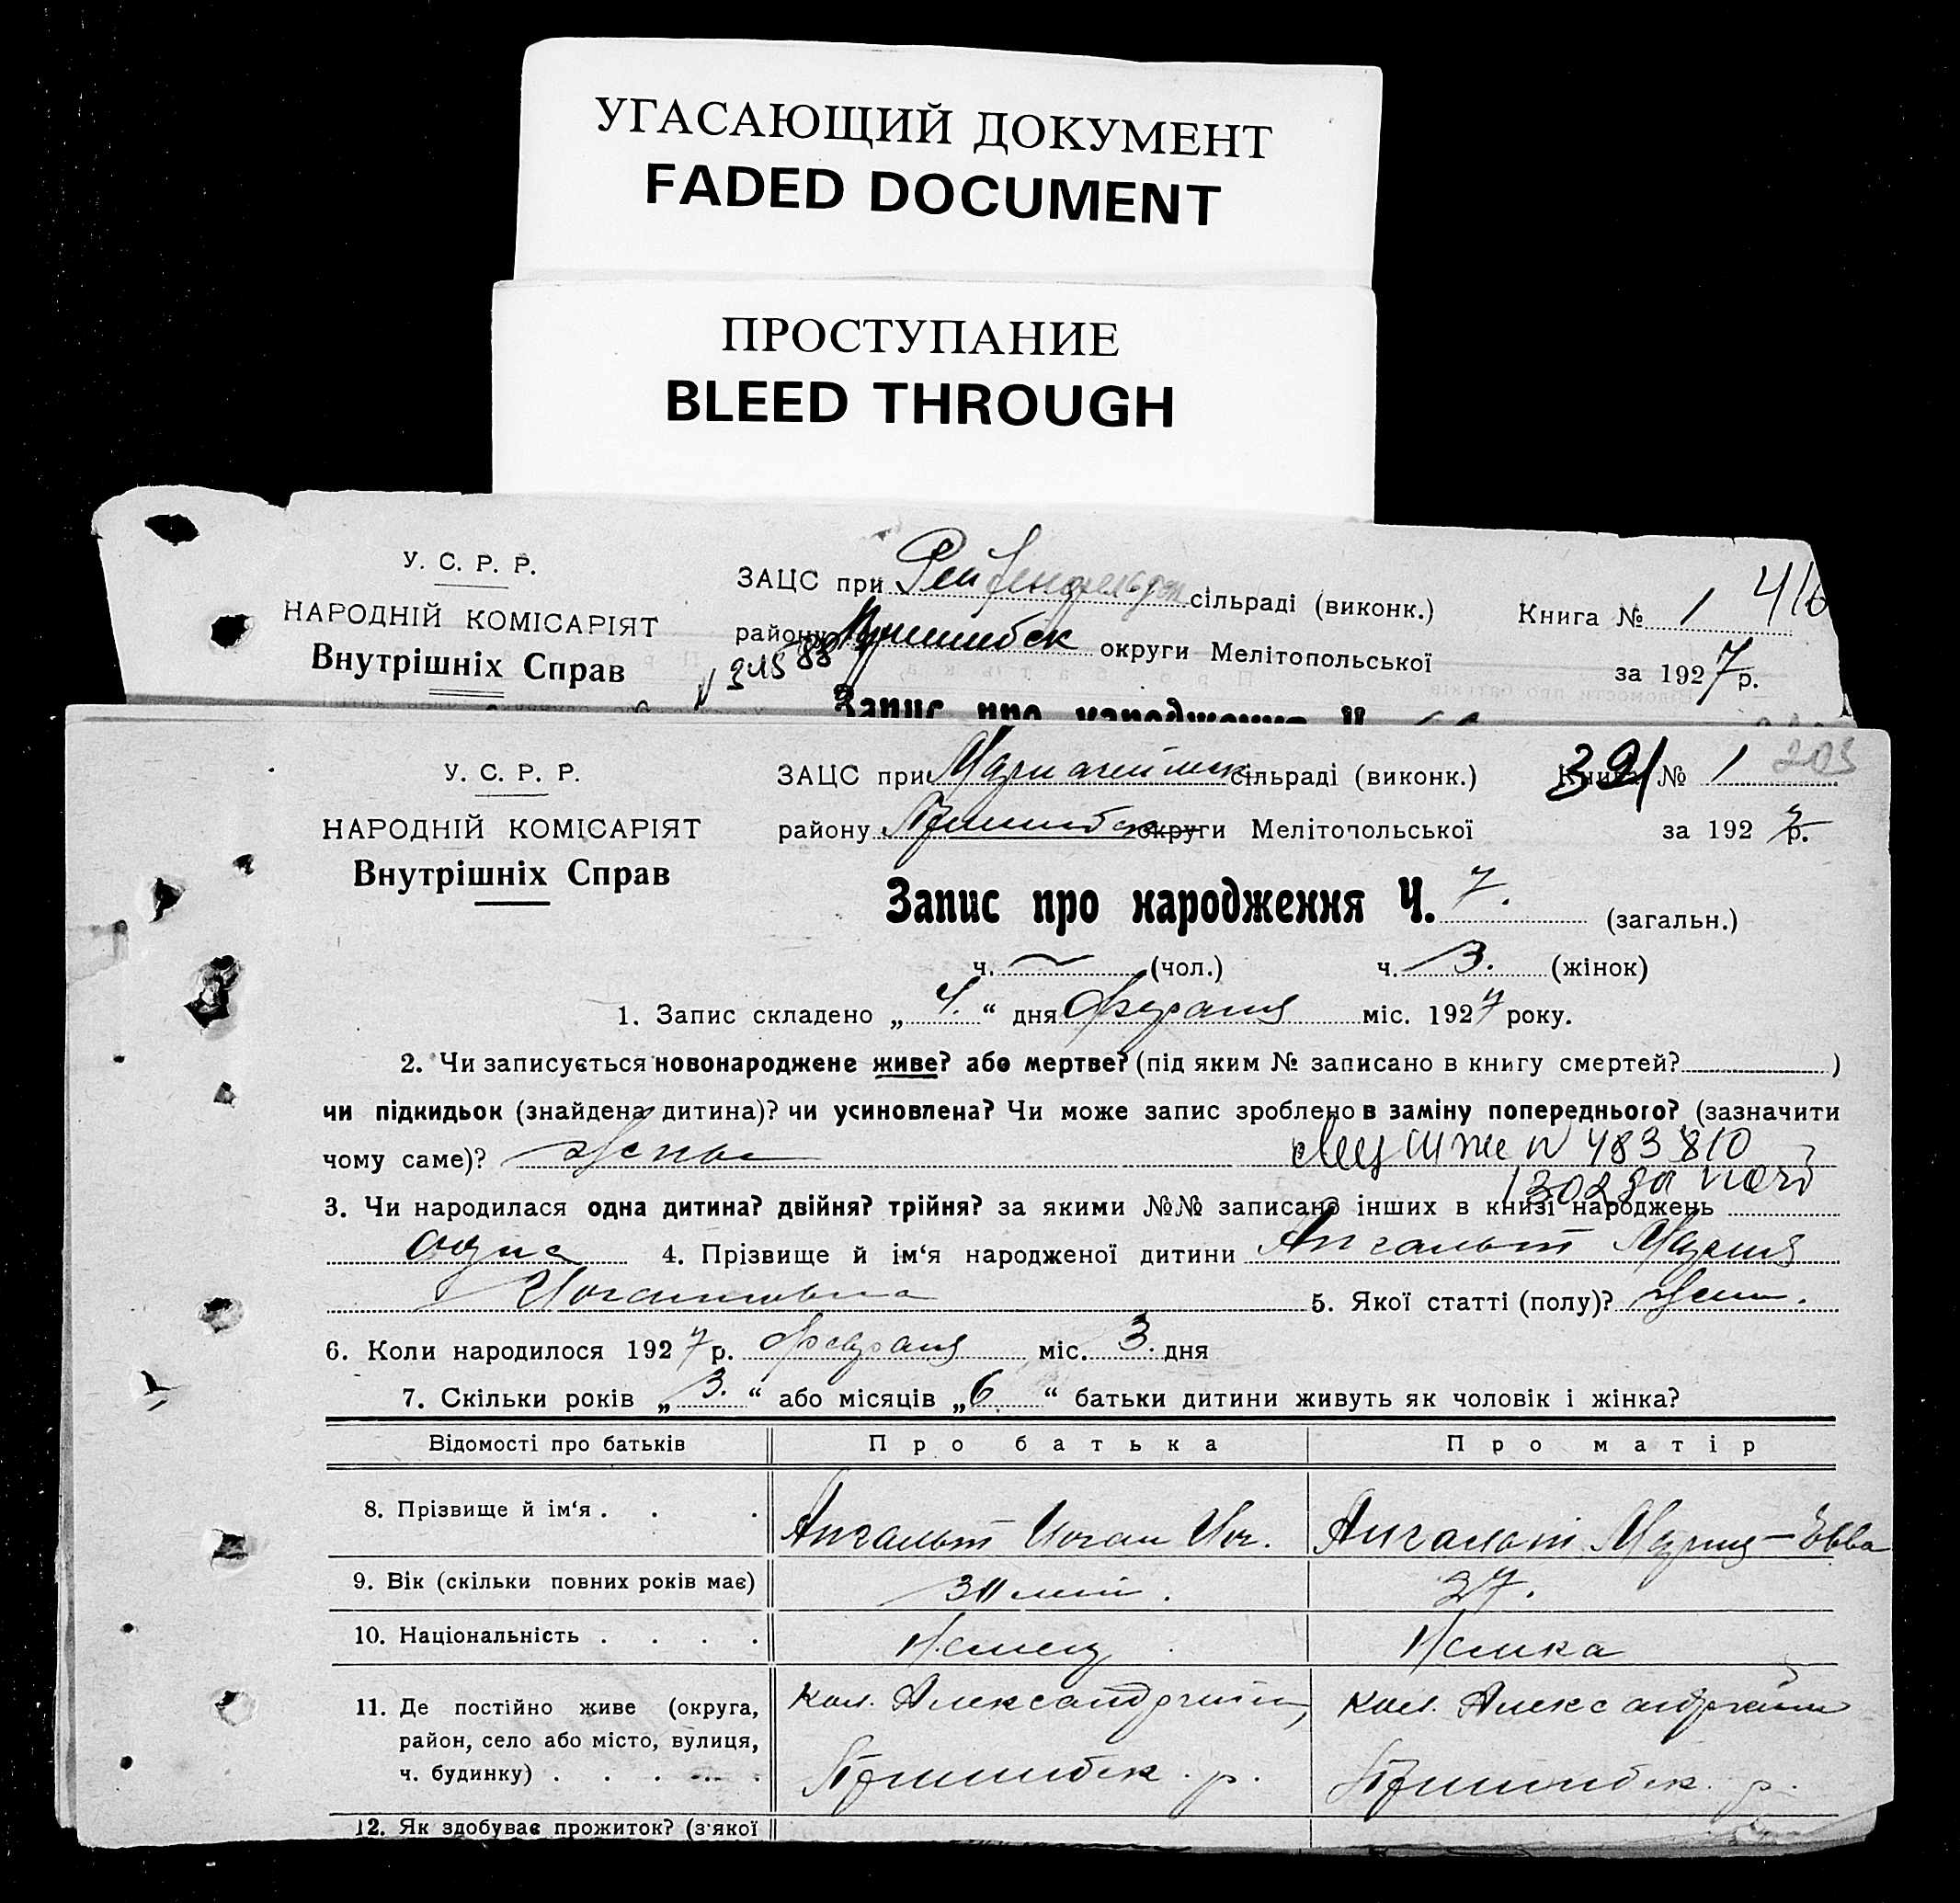 УГАСАЮЩИЙ ДОКУМЕНТ
FADED DOCUMENT
ПРОСТУПАНИЕ
BLEED THROUGH
У. С. Р. Р.
НАРОДНІЙ КОМІСАРІЯТ
Внутрішніх Справ
ЗАЦС при Рейхенфельдск сільраді (виконк.)
району Пришибск округи Мелітопольської
Книга № 1 416
за 1927 р.
Запис про народження Ч.
У. С. Р. Р.
НАРОДНІЙ КОМІСАРІЯТ
Внутрішніх Справ
ЗАЦС при сільраді (виконк.) Книга № 1 203
391
району Пришибск округи Мелітопольської за 1927 р.
Запис про народження Ч. 7. (загальн.)
ч. — (чол.) ч. 3. (жінок)
1. Запис складено „ 4. “ дня февраля міс. 1927 року.
2. Чи записується новонароджене живе? або мертве? (під яким № записано в книгу смертей? )
чи підкидьок (знайдена дитина)? чи усиновлена? Чи може запис зроблено в заміну попереднього? (зазначити
чому саме)? № 483810
3. Чи народилася одна дитина? двійня? трійня? за якими №№ записано інших в книзі народжень
одна 4. Прізвище й ім‘я народженої дитини Ангальт Мария
Иогановна 5. Якої статті (полу)? жен.
6. Коли народилося 1927 р. февраля міс. 3. дня
7. Скільки років „ 3. “ або місяців „ 6. “ батьки дитини живуть як чоловік і жінка?
Відомості про батьків Про батька Про матір
8. Прізвище й ім‘я . . . Ангальт Иоган Иог. Ангальт Мария-Евва
9. Вік (скільки повних років має) лет. 27.
10. Національність . . . . Немец Немка
11. Де постійно живе (округа, кол. Александргейм, кол. Александргейм
район, село або місто, вулиця,
ч. будинку) . . . . . . Пришибск. р. Пришибск. р.
12. Як здобуває прожиток? (з якої